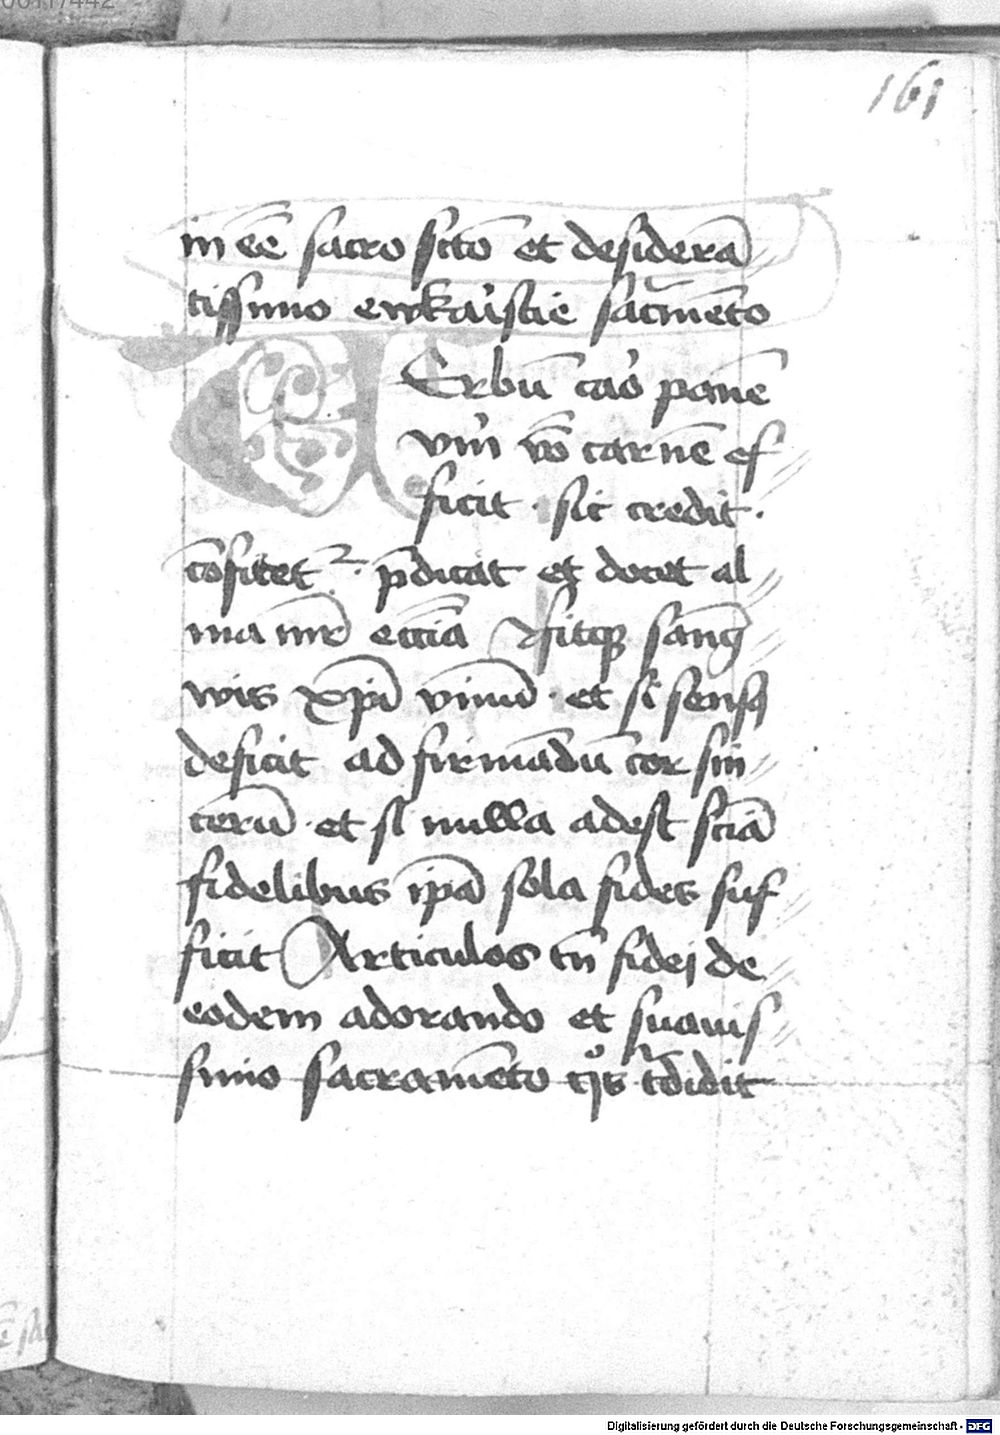 161
in eē sacro sctō et desiderā
tissimo ewkar̓istie sacͣmēto
Verbū caro̓ panē
vm̓ vo̅ carnē ef
ficit · sic credit ·
cōfitet᷑ · p̄dicat et docet al
ma mr̄ eccīa ffitqꝫ sang
wis xp̄i vinū · et si sensꝫ
deficit ad firmādū cor sin
cerū · et si nulla adest scīa
fidelibus ip̄a sola fides suf
ficit Articulos tn̄ fidei de
eodem adorando et suauis
simo sacramēto qͦs tͣdidit
Digitalisierung gefördert durch die Deutsche Forschungsgemeinschaft - DFG